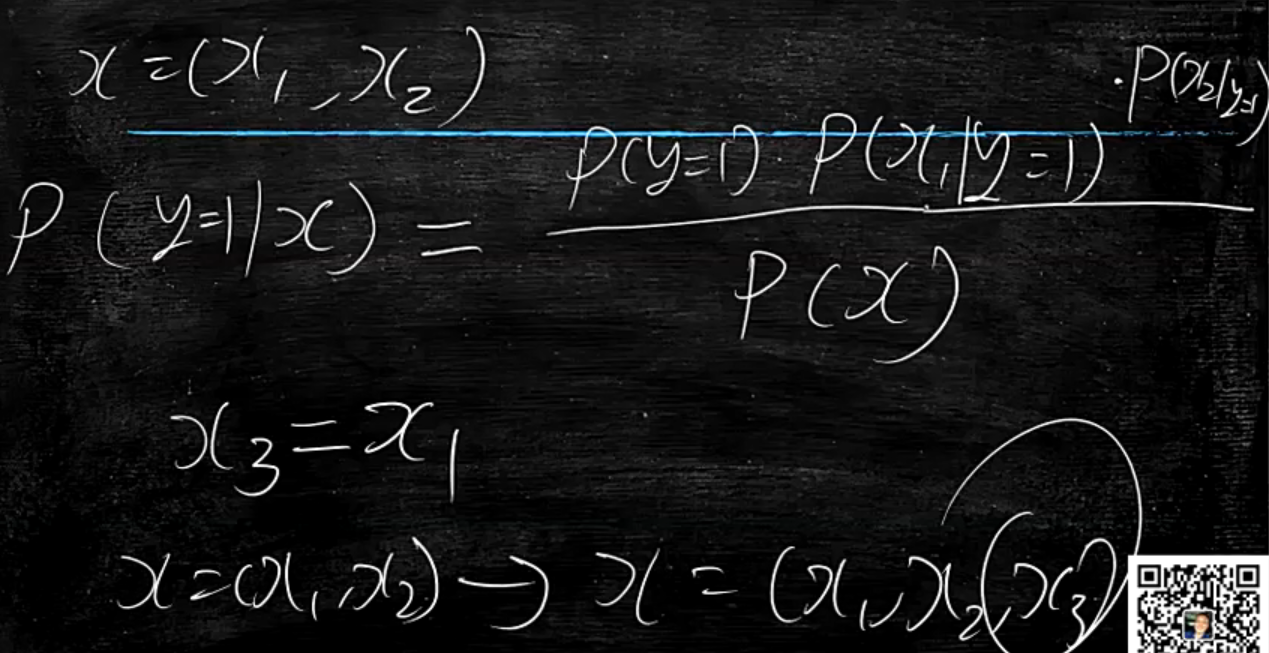 x=(x₁, x₂)
·P(x₂|y=1)
P(y=1)·P(x₁|y=1)
P(y=1|x)=
P(x)
x₃=x₁
x=(x₁,x₂)→x=(x₁,x₂,x₃)